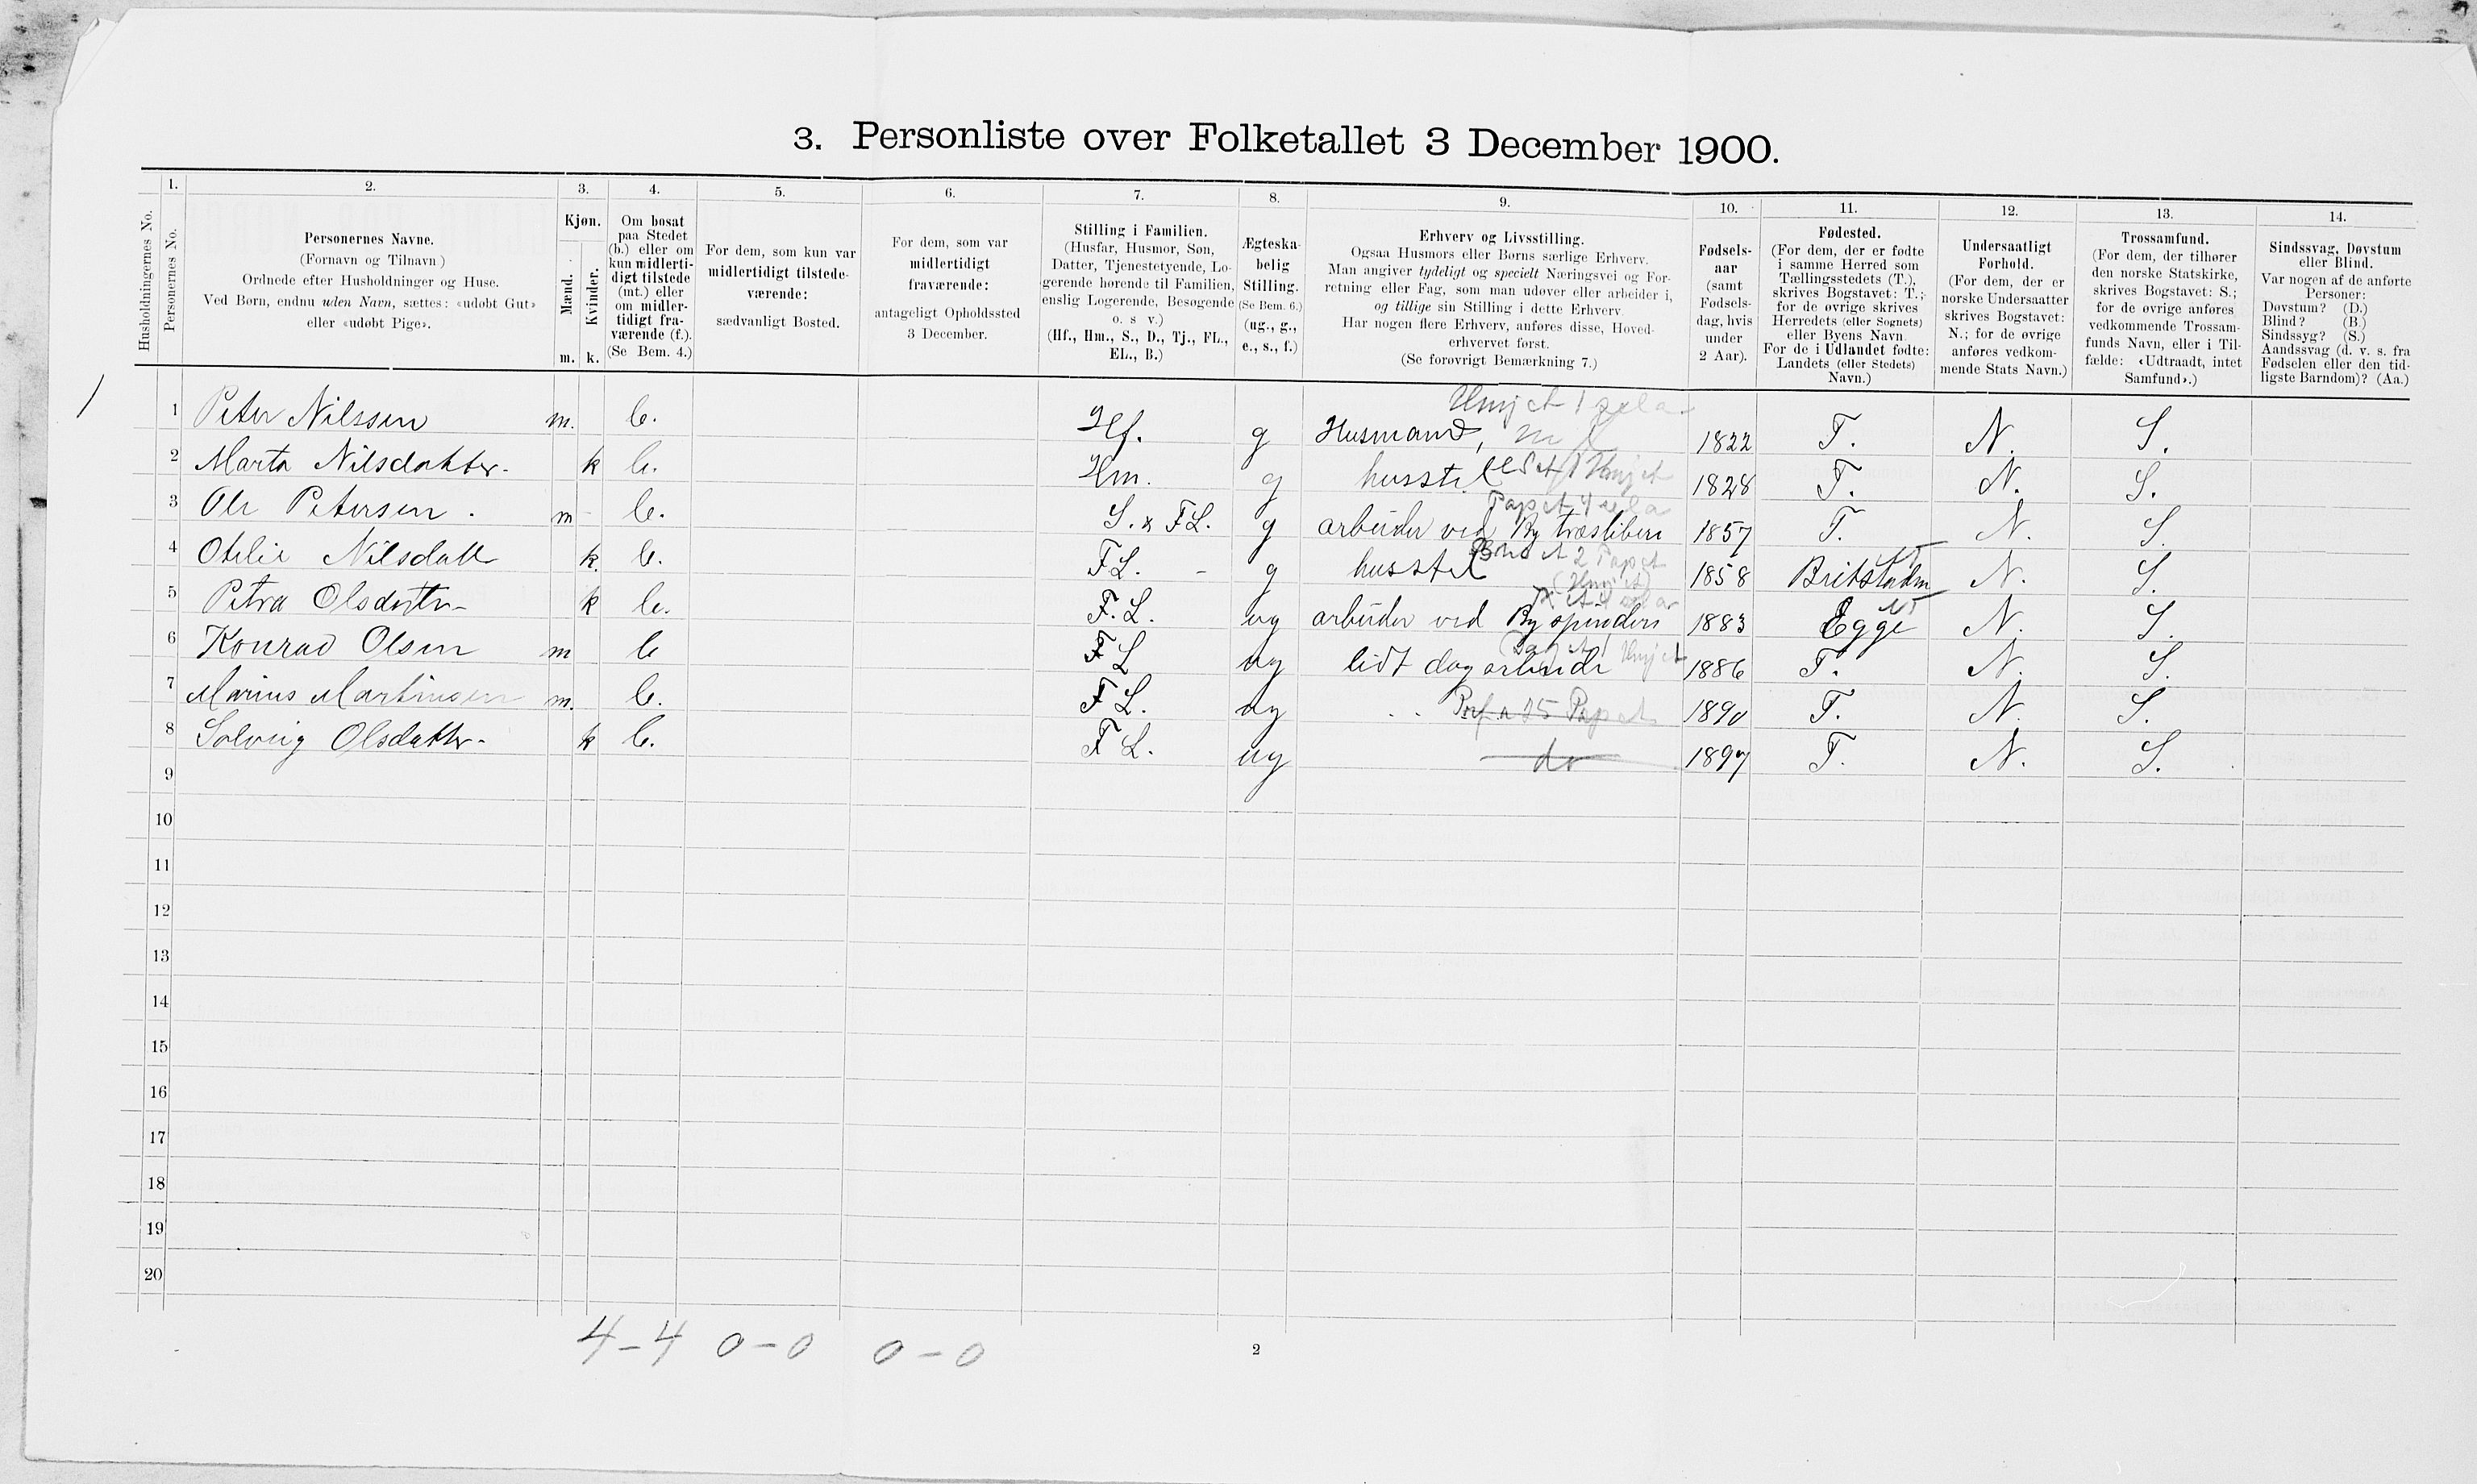 3. Personliste over Folketallet 3 December 1900.
Husholdningernes No.
1.
Personernes No.
2.
Personernes Navne.
(Fornavn og Tilnavn)
Ordnede efter Husholdninger og Huse.
Ved Børn, endnu uden Navn, sættes: «udøbt Gut»
eller «udøbt Pige».
3.
Kjøn.
Mænd.
Kvinder.
m. k.
4.
Om bosat
paa Stedet
(b.) eller om
kun midlerti-
digt tilstede
(mt.) eller
om midler-
tidigt fra-
værende (f.).
(Se Bem. 4.)
5.
For dem, som kun var
midlertidigt tilstede-
værende:
sædvanligt Bosted.
6.
For dem, som var
midlertidigt
fraværende:
antageligt Opholdssted
3 December.
7.
Stilling i Familien.
(Husfar, Husmor, Søn,
Datter, Tjenestetyende, Lo-
gerende hørende til Familien,
enslig Logerende, Besøgende
o. s. v.)
(Hf., Hm., S., D., Tj., FL.,
EL., B.)
8.
Ægteska-
belig
Stilling.
(Se Bem. 6.)
(ug., g.,
e., s., f.)
9.
Erhverv og Livsstilling.
Ogsaa Husmors eller Børns særlige Erhverv.
Man angiver tydeligt og specielt Næringsvei og For-
retning eller Fag, som man udøver eller arbeider i,
og tillige sin Stilling i dette Erhverv.
Har nogen flere Erhverv, anføres disse, Hoved-
erhvervet først.
(Se forøvrigt Bemærkning 7.)
10.
Fødsels-
aar
(samt
Fødsels-
dag, hvis
under
2 Aar).
11.
Fødested.
(For dem, der er fødte
i samme Herred som
Tællingsstedets (T.),
skrives Bogstavet: T.;
for de øvrige skrives
Herredets (eller Sognets)
eller Byens Navn.
For de i Udlandet fødte:
Landets (eller Stedets)
Navn.)
12.
Undersaatligt
Forhold.
(For dem, der er
norske Undersaatter
skrives Bogstavet:
N.; for de øvrige
anføres vedkom-
mende Stats Navn.)
13.
Trossamfund.
(For dem, der tilhører
den norske Statskirke,
skrives Bogstavet: S.;
for de øvrige anføres
vedkommende Trossam-
funds Navn, eller i Til-
fælde: «Udtraadt, intet
Samfund».)
14.
Sindssvag, Døvstum
eller Blind.
Var nogen af de anførte
Personer:
Døvstum? (D.)
Blind? (B.)
Sindssyg? (S.)
Aandssvag (d. v. s. fra
Fødselen eller den tid-
ligste Barndom)? (Aa.)
1 1 Peter Nilssen m. b. Hf. g Husmand, 1822 T. N. S.
2 Marta Nilsdatter k b. Hm. g husstel 1828 T. N. S.
3 Ole Petersen m b. S. & FL. g arbeider ved By træsliberi 1857 T. N. S.
4 Otelie Nilsdatt k. b. FL. g husstel 1858 N. S.
5 Petra Olsdatter k b. F. L. ug arbeider ved By spinderi 1883 Egge N. S.
6 Konrad Olsen m b FL ug lidt dagarbeide 1886 T. N. S.
7 Marius Martinsen m. b. FL. ug 1890 T. N. S.
8 Solveig Olsdatter k b. FL. ug do 1897 T. N. S.
9
10
11
12
13
14
15
16
17
18
19
20
4-4 0-0 0-0
2